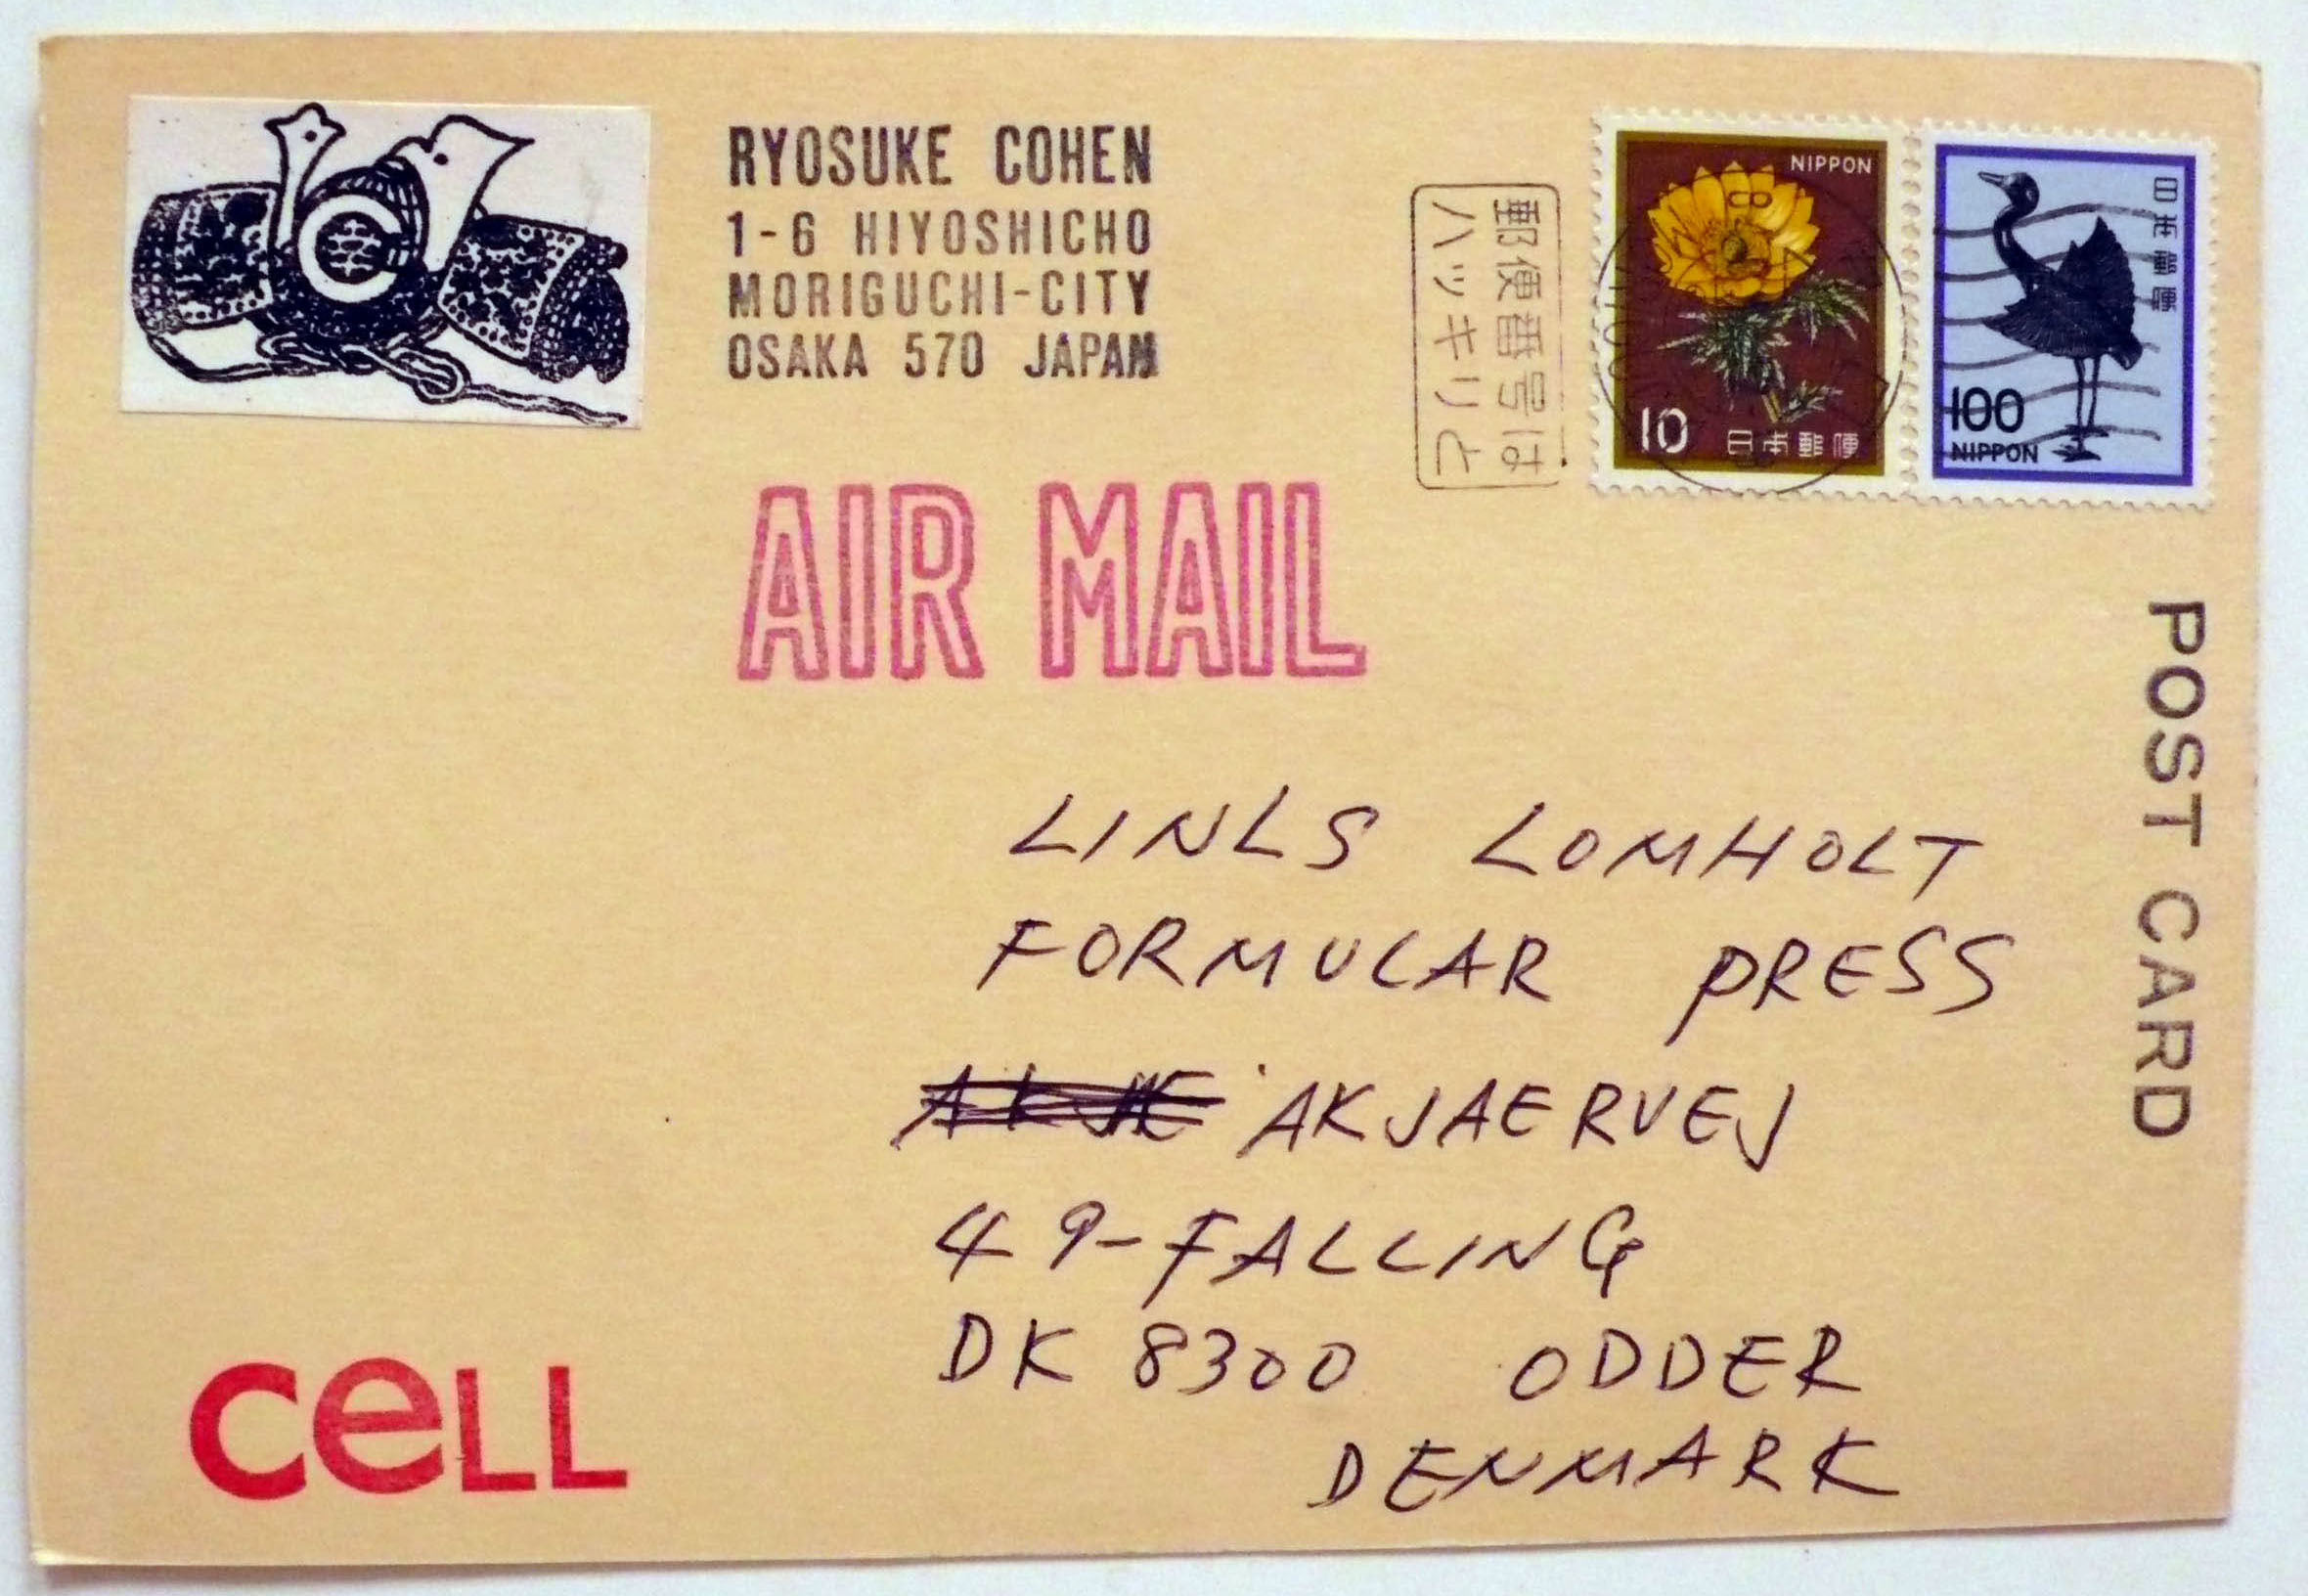 RYOSUKE COHEN
1-6 HIYOSHICHO
MORIGUCHI-CITY
OSAKA 570 JAPAN
郵便番号は
ハッキリと
NIPPON
10
日本郵便
日本郵便
100
NIPPON
AIR MAIL
POST CARD
LINLS LOMHOLT
FORMULAR PRESS
AKJAERVEJ
49-FALLING
DK 8300 ODDER
DENMARK
CeLL